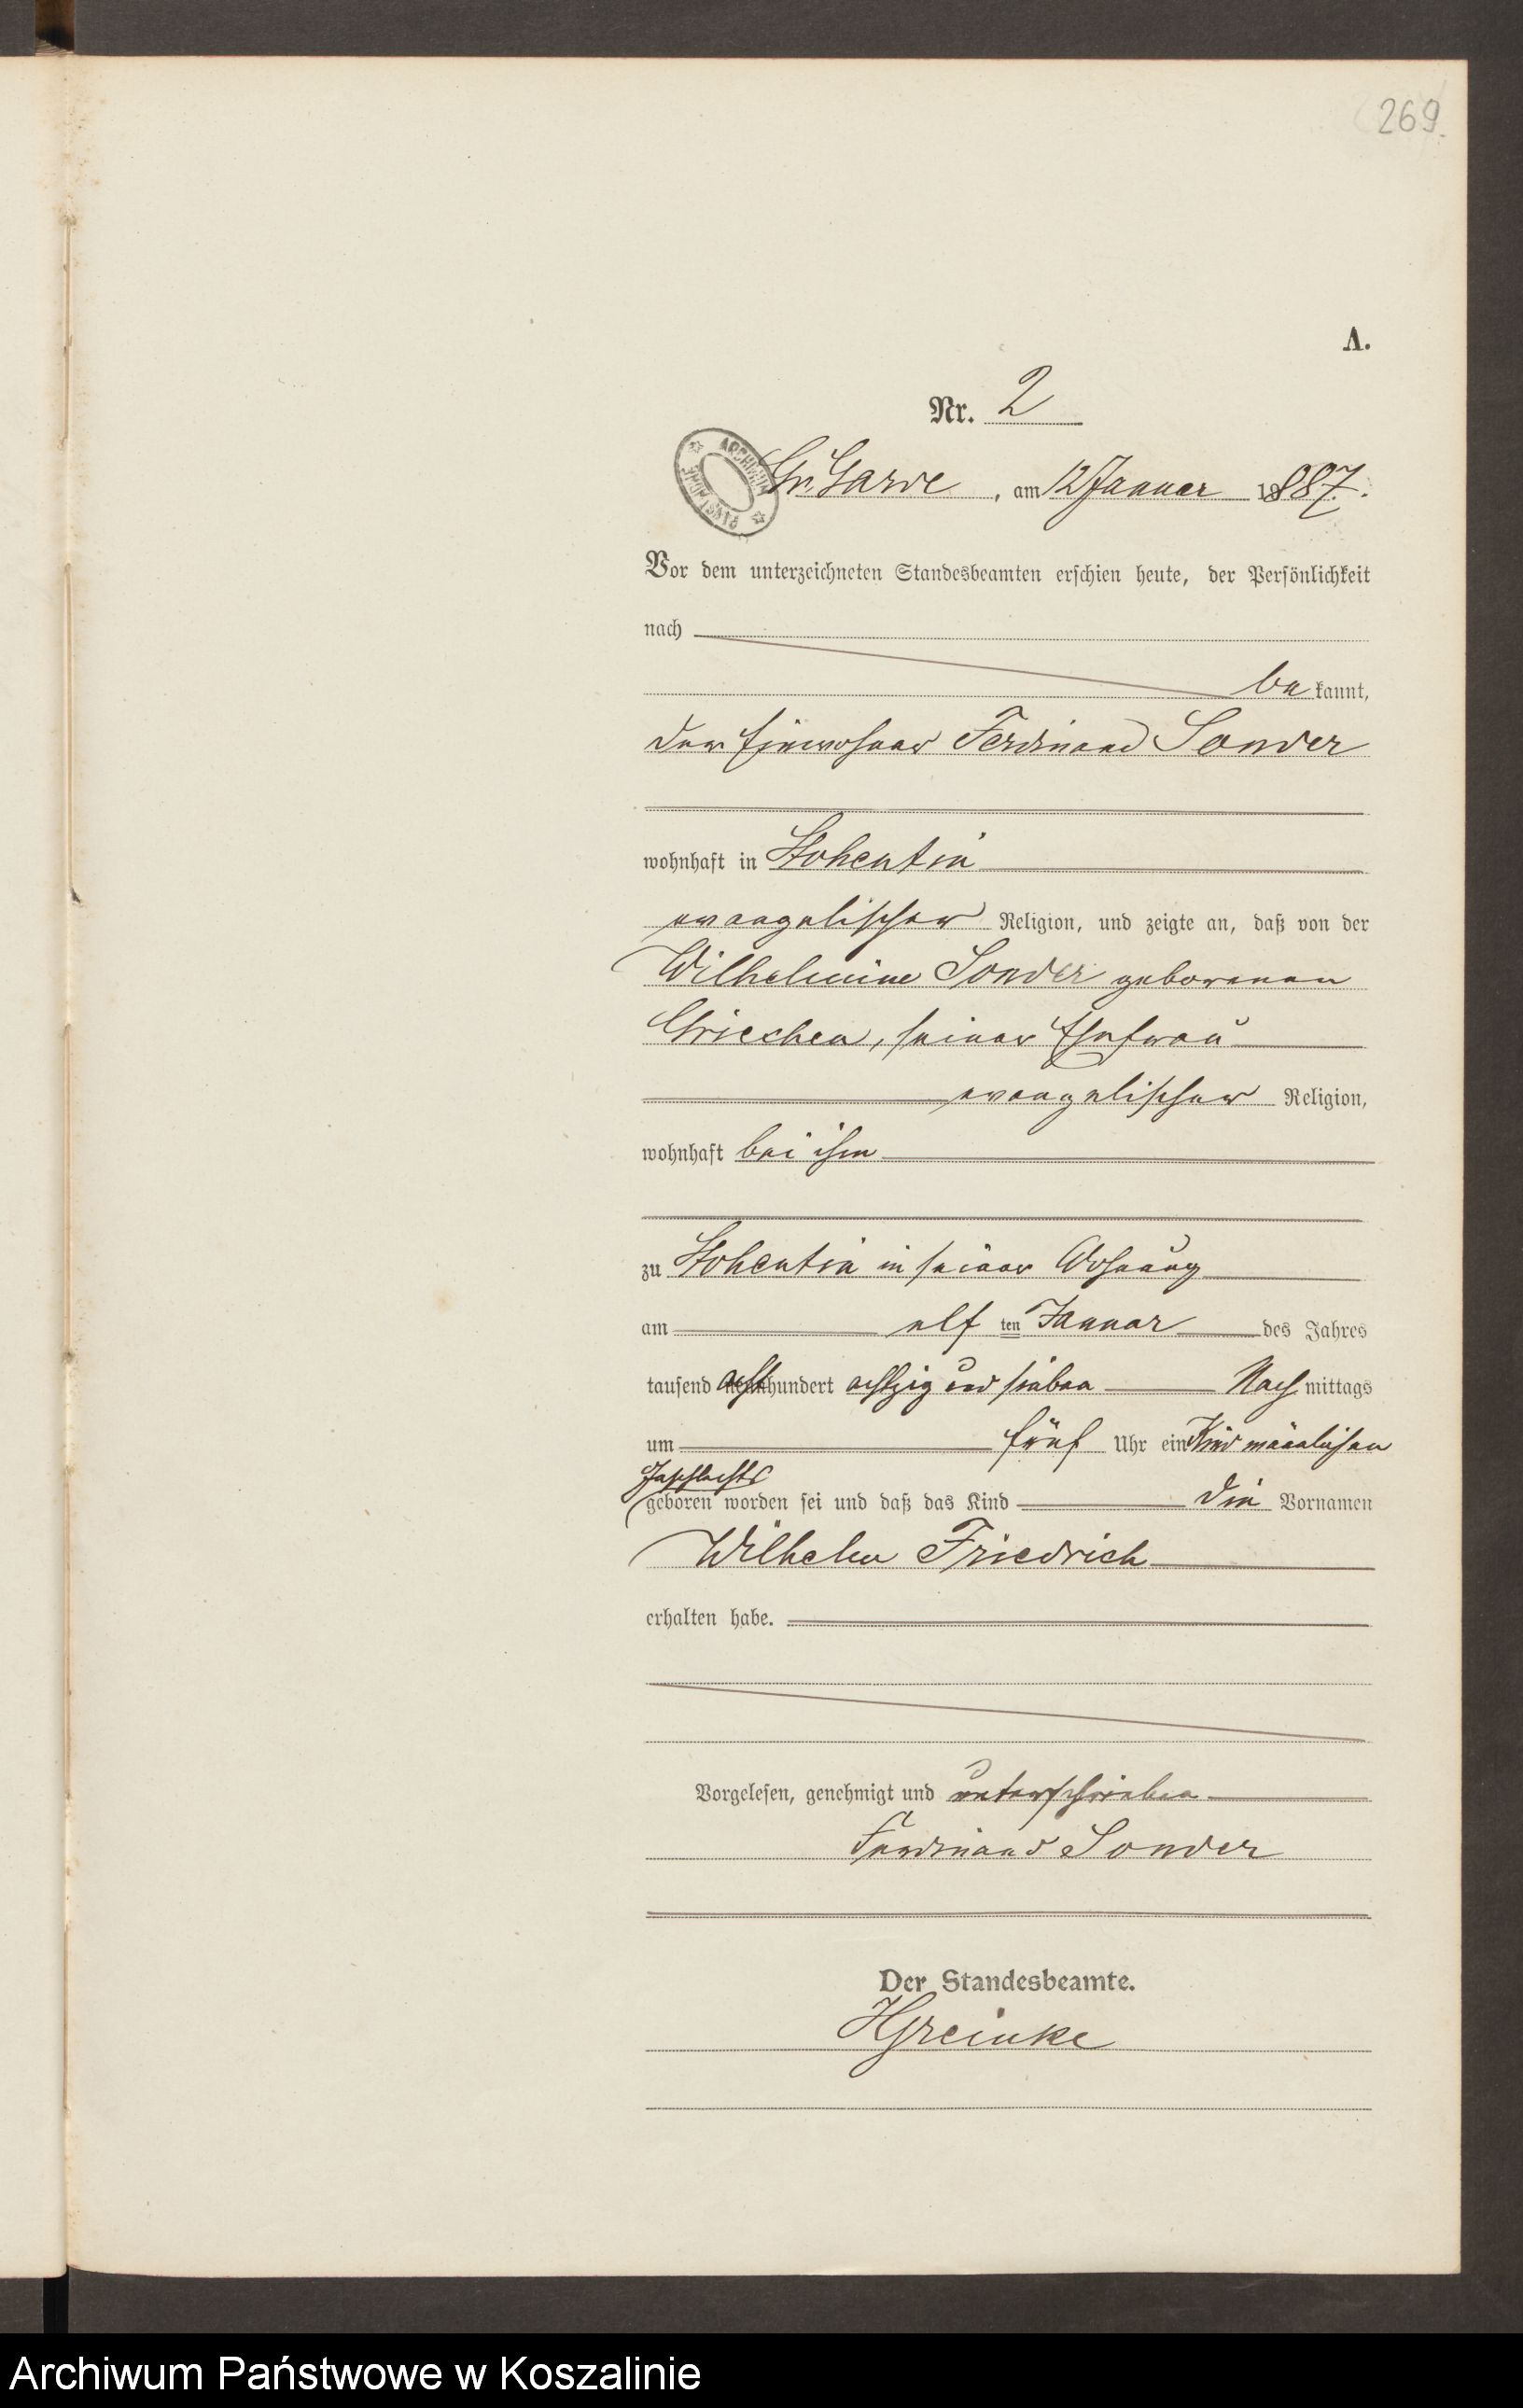 269.
A.
Nr. 2
ARCHIWUM PAŃSTWOWE
Gr. Garde, am 12 Januar 1887.
Vor dem unterzeichneten Standesbeamten erschien heute, der Persönlichkeit
nach
be kannt,
der Einwohner Ferdinand Sonder
wohnhaft in Stohentin
evangelischer Religion, und zeigte an, daß von der
Wilhelmine Sonder geborenen
Griechen, seiner Ehefrau
evangelischer Religion,
wohnhaft bei ihm
zu Stohentin in seiner Wohnung
am elf ten Januar des Jahres
tausend acht hundert achtzig und sieben Nach mittags
um fünf Uhr ein Kind männlichen
Geschlechts
geboren worden sei und daß das Kind die Vornamen
Wilhelm Friedrich
erhalten habe.
Vorgelesen, genehmigt und unterschrieben
Ferdinand Sonder
Der Standesbeamte.
HGreinke
Archiwum Państwowe w Koszalinie